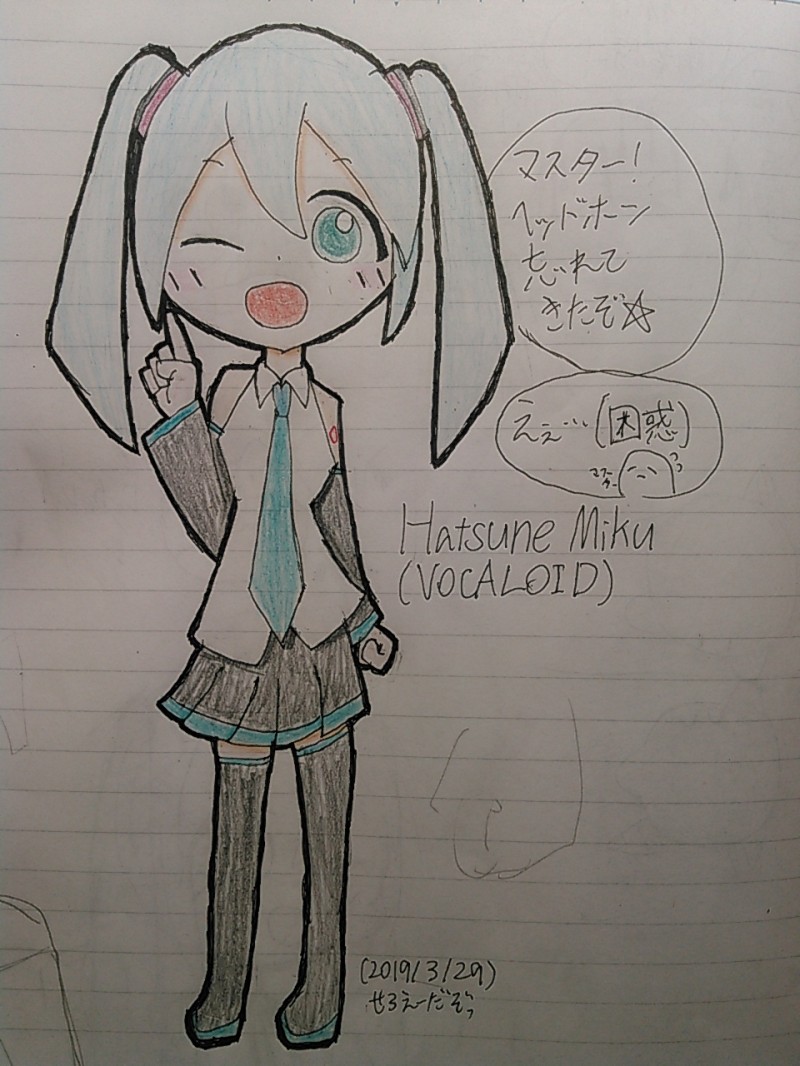 マスター!
ヘッドホーン
忘れて
きたぞ☆
えぇ…(困惑)
マスター
Hatsune Miku
(VOCALOID)
(2019/3/29)
せろえーだぞっ